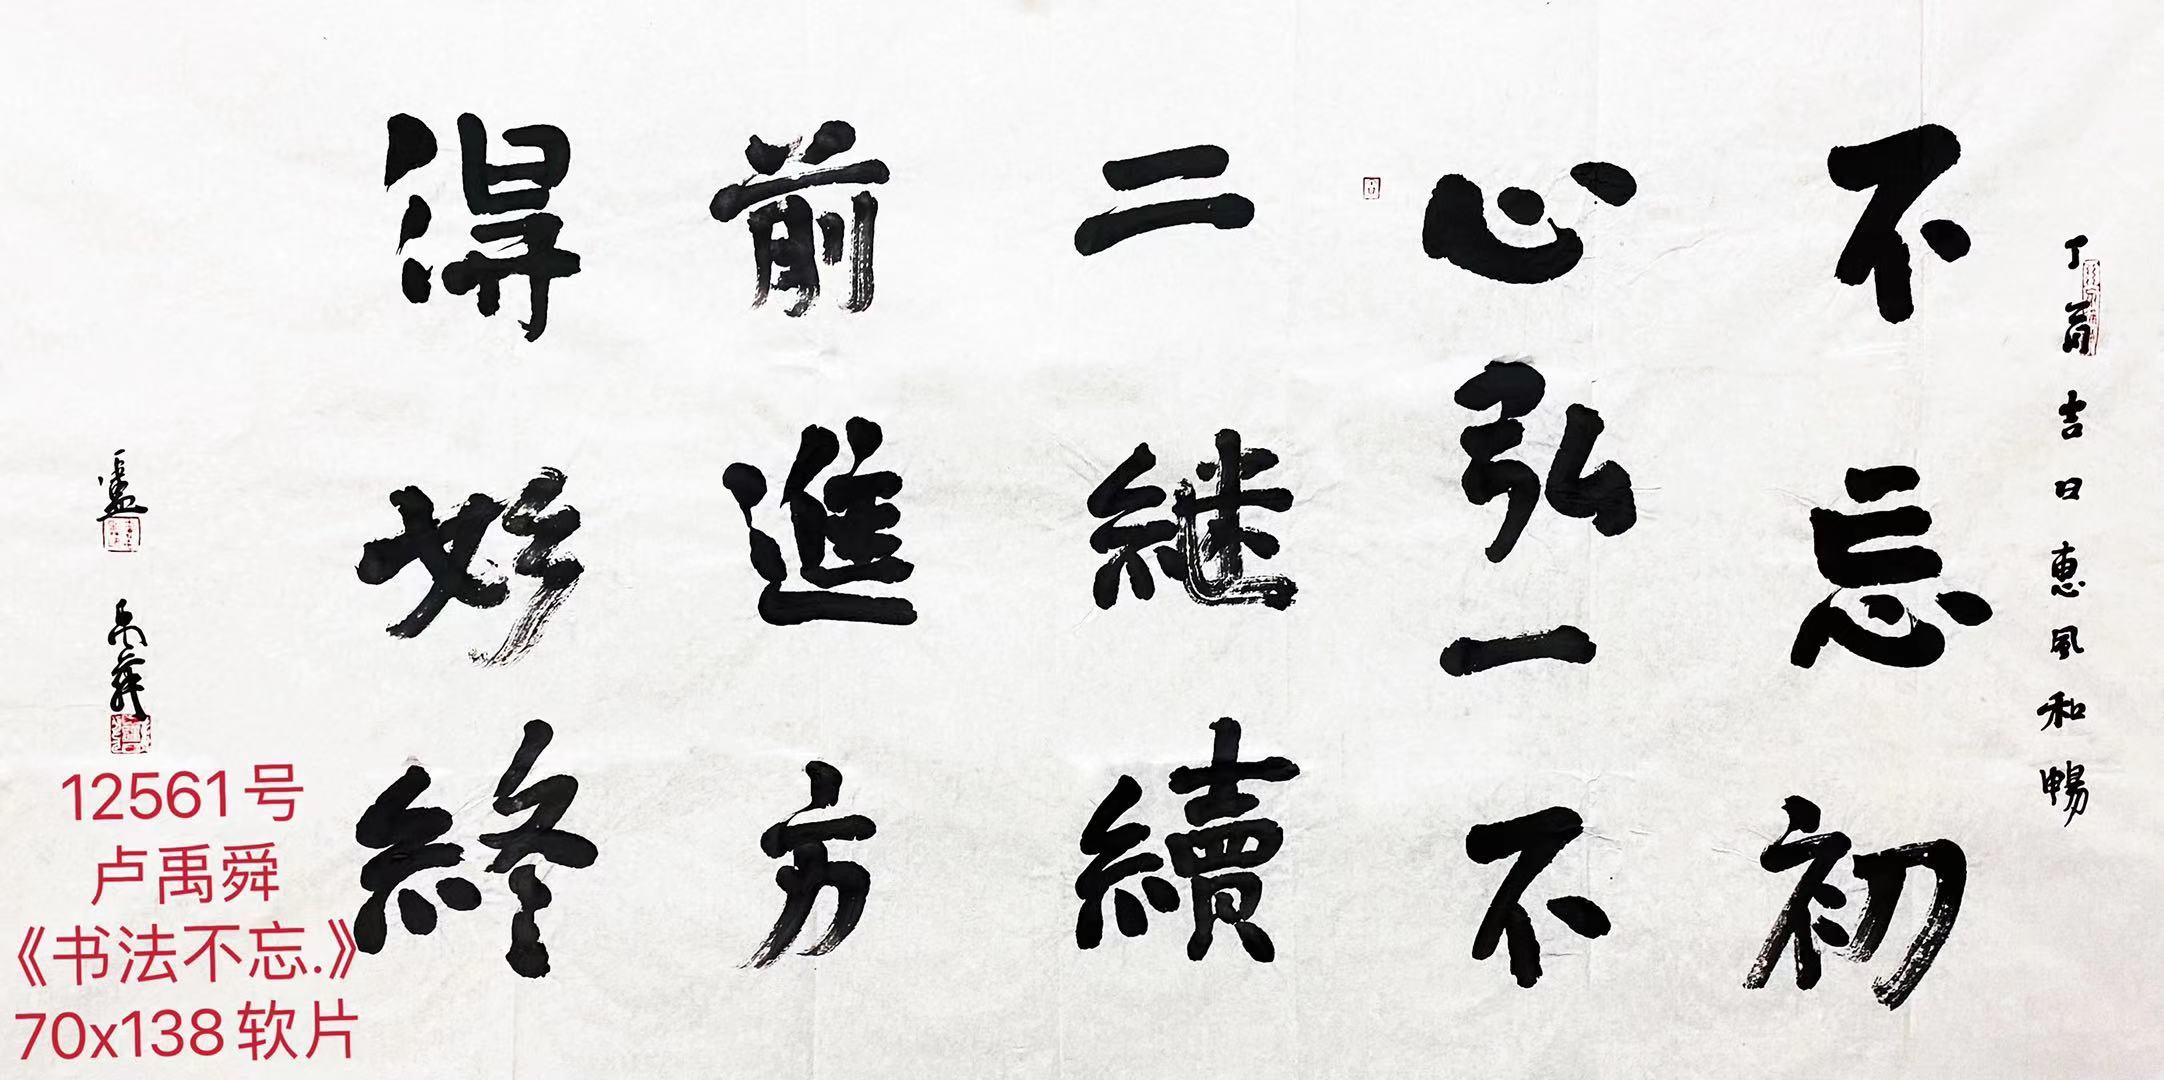 丁酉吉日惠風和暢
不忘初
心弘一不
二継續
前進方
得始終
盧禹舜
12561号
卢禹舜
《书法不忘.》
70x138软片